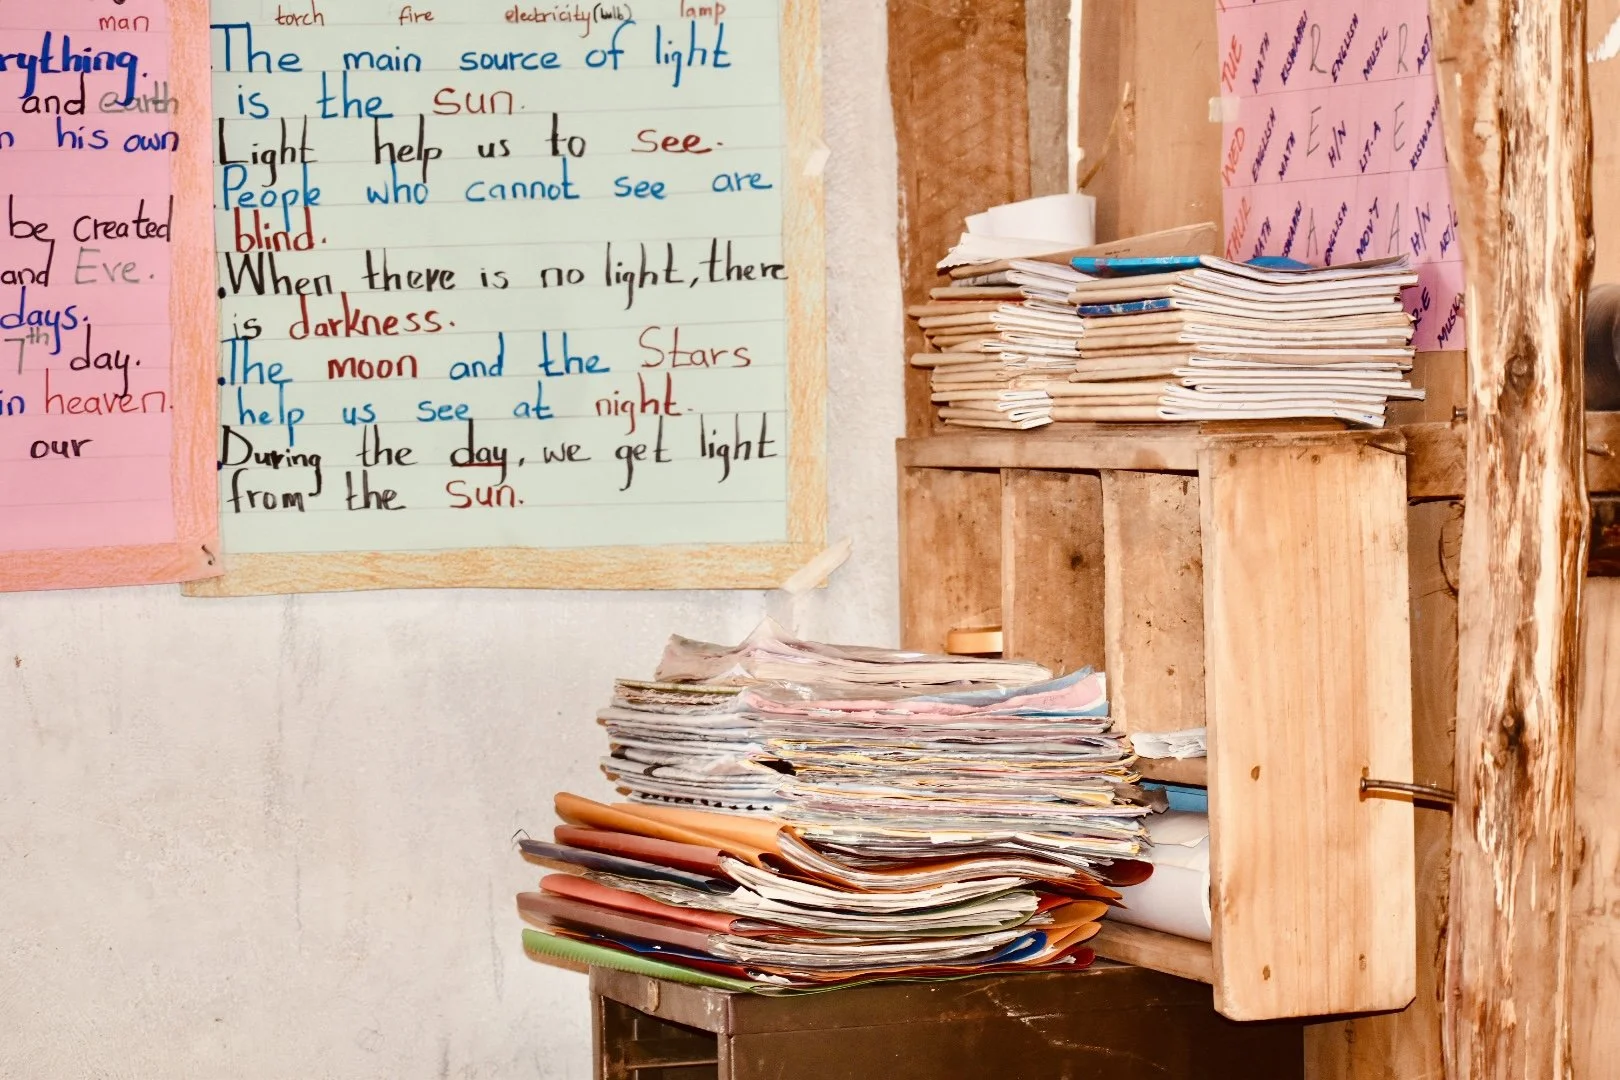 man
rything.
and earth
n his own
be created
and Eve.
days.
7th day.
in heaven.
our
torch fire electricity(bulb) lamp
The main source of light
is the Sun.
Light help us to see.
People who cannot see are
blind.
When there is no light, there
is darkness.
The moon and the Stars
help us see at night.
During the day, we get light
from the Sun.
TUE MATH R ENGLISH MUSIC R ART/
WED ENGLISH MATH E H/N LIT-A E
THUR MATH A ENGLISH MOV'T A H/N ART/C
R.E MUSIC